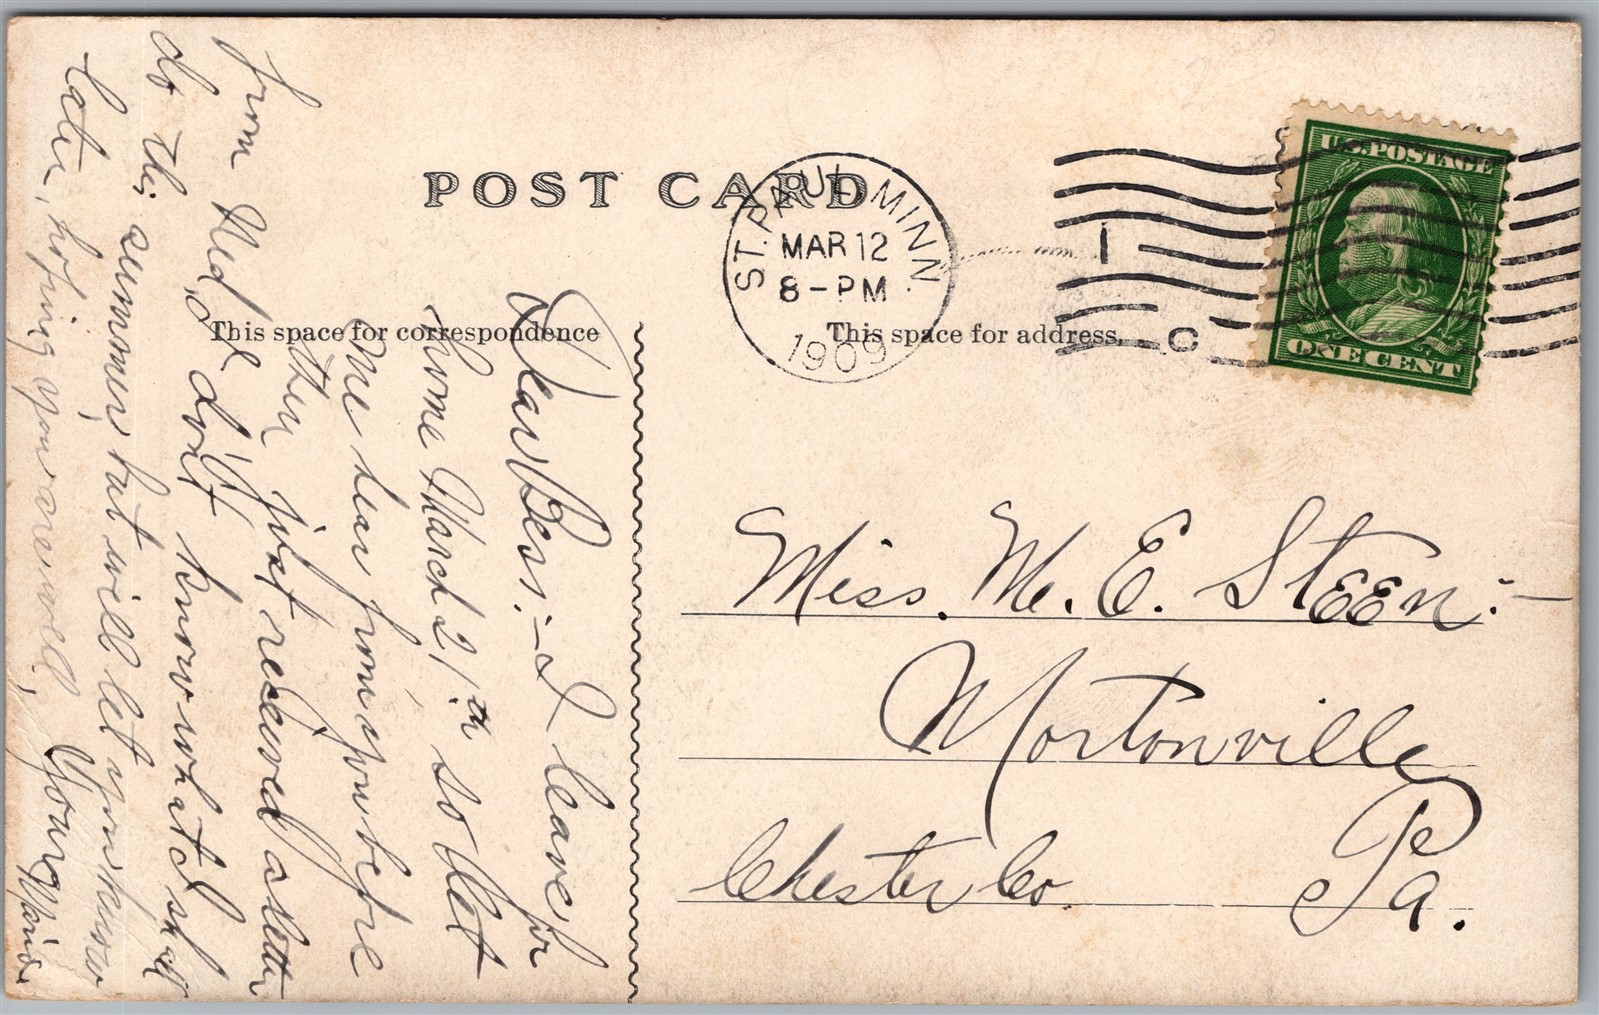 POST CARD
ST. PAUL, MINN.
MAR 12
8-PM
1909
1
C
U.S. POSTAGE
ONE CENT
This space for correspondence
This space for address
Dear Bess:- I leave for
home March 21st so let
me hear from you before
then just received a letter
from Ned, I don't know what I shall
do this summer, but will let you know
later, hoping you are well, Yours
Miss. M. E. Steen:-
Mortonville
Chester Co. Pa.